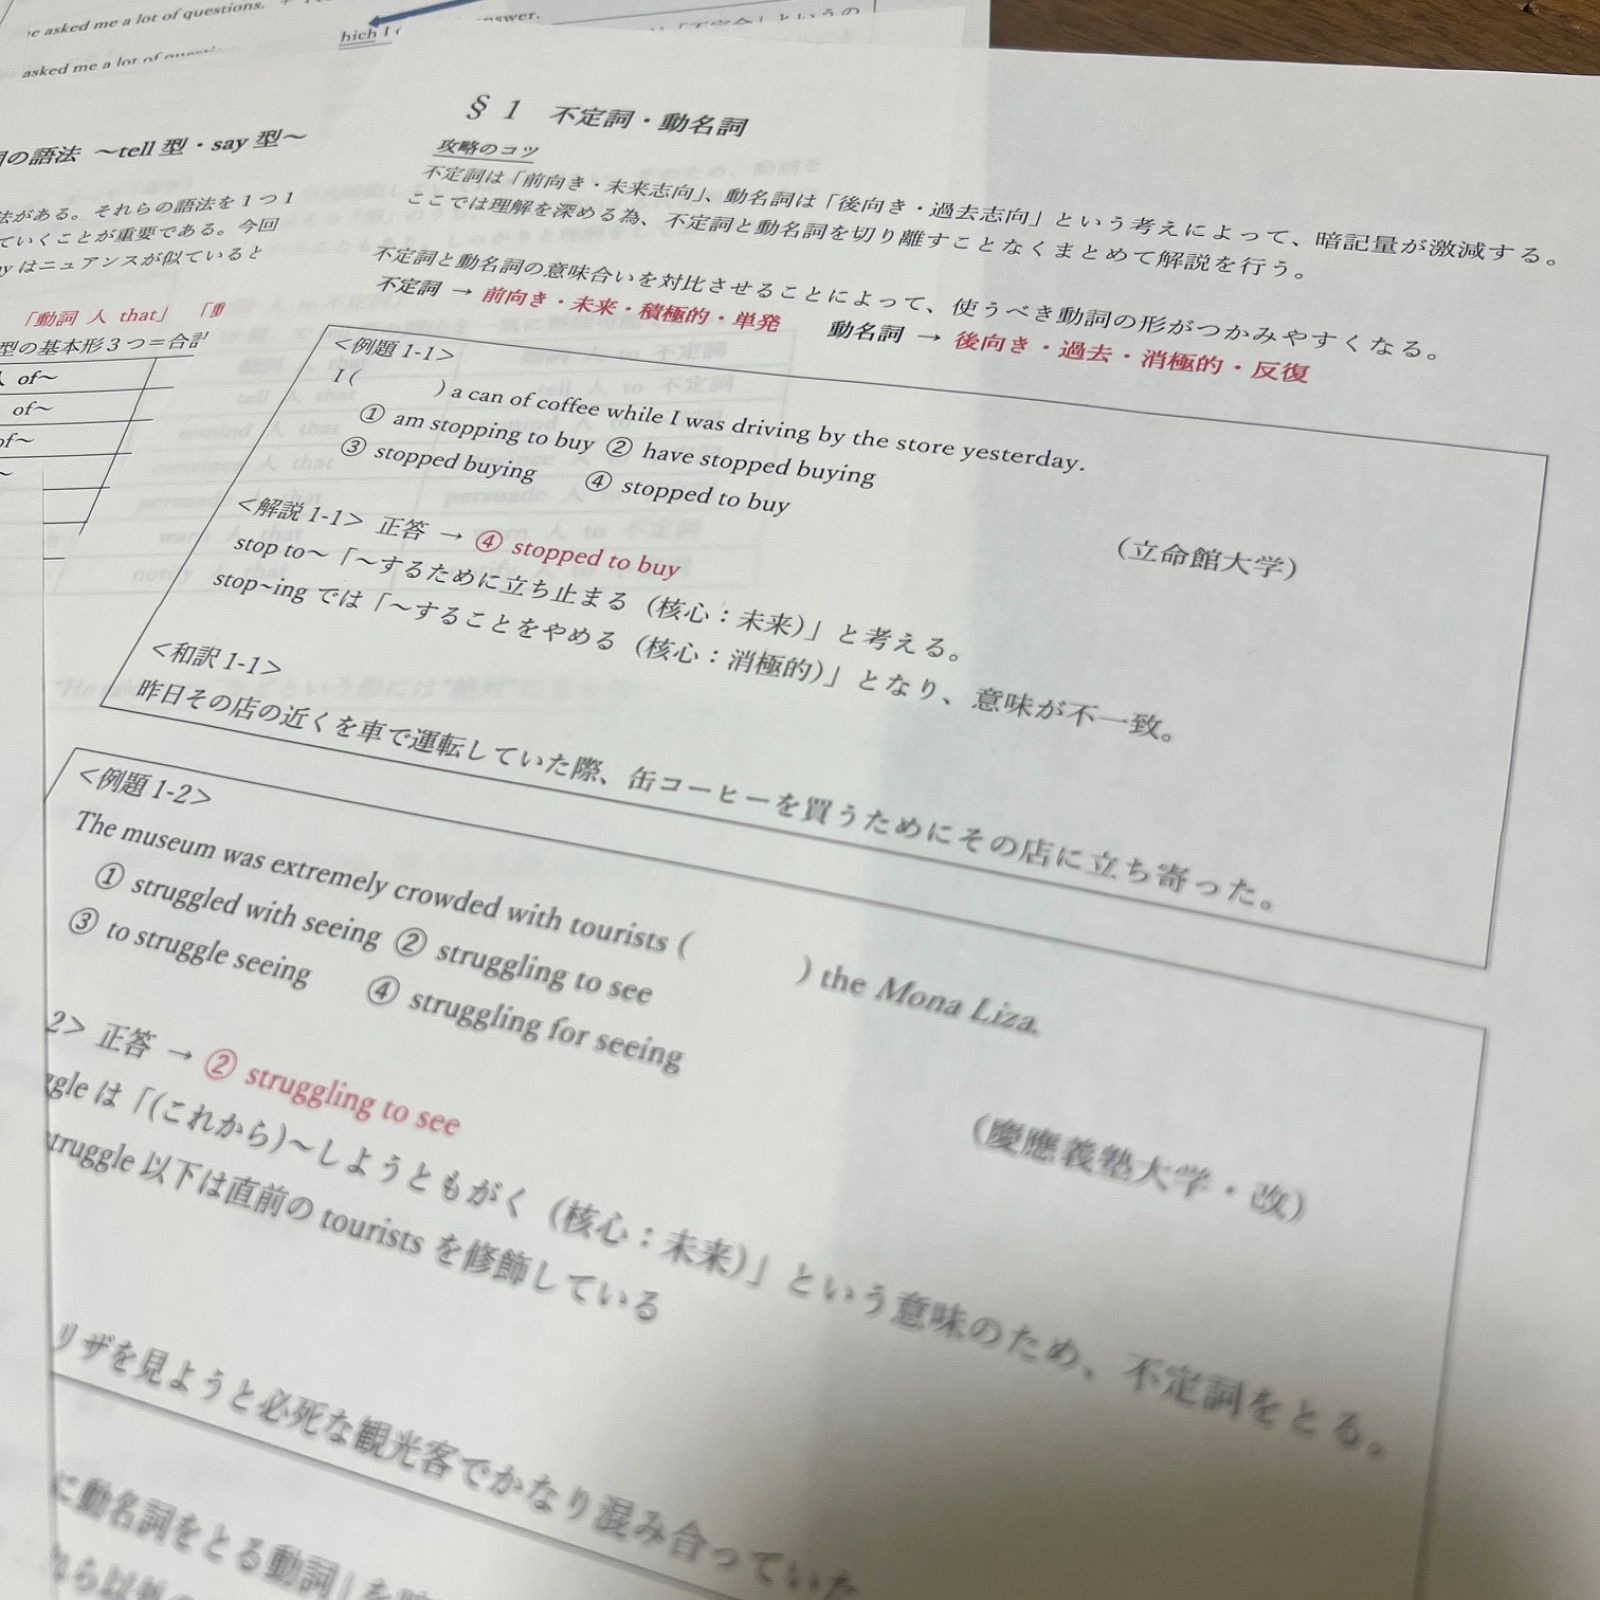 e asked me a lot of questions.
asked me a lot of
hich I
nswer.
の語法 ～tell 型・say 型～
法がある。それらの語法を１つ１
ていくことが重要である。今回
ay はニュアンスが似ていると
「動詞 人 that」 「動
型の基本形３つ＝合計
人 of～
of～
of～
§１ 不定詞・動名詞
攻略のコツ
不定詞は「前向き・未来志向」、動名詞は「後向き・過去志向」という考えによって、暗記量が激減する。
ここでは理解を深める為、不定詞と動名詞を切り離すことなくまとめて解説を行う。
不定詞と動名詞の意味合いを対比させることによって、使うべき動詞の形がつかみやすくなる。
不定詞 → 前向き・未来・積極的・単発　動名詞 → 後向き・過去・消極的・反復
<例題 1-1>
I (　　　) a can of coffee while I was driving by the store yesterday.
① am stopping to buy ② have stopped buying
③ stopped buying ④ stopped to buy
(立命館大学)
<解説 1-1> 正答 → ④ stopped to buy
stop to～「～するために立ち止まる（核心：未来)」と考える。
stop~ing では「～することをやめる（核心：消極的)」となり、意味が不一致。
<和訳 1-1>
昨日その店の近くを車で運転していた際、缶コーヒーを買うためにその店に立ち寄った。
<例題 1-2>
The museum was extremely crowded with tourists (　　　) the Mona Liza.
① struggled with seeing ② struggling to see
③ to struggle seeing ④ struggling for seeing
(慶應義塾大学・改)
2> 正答 → ② struggling to see
ggle は「(これから)～しようともがく（核心：未来)」という意味のため、不定詞をとる。
truggle 以下は直前の tourists を修飾している
リザを見ようと必死な観光客でかなり混み合っていた
に動名詞をとる動詞」を